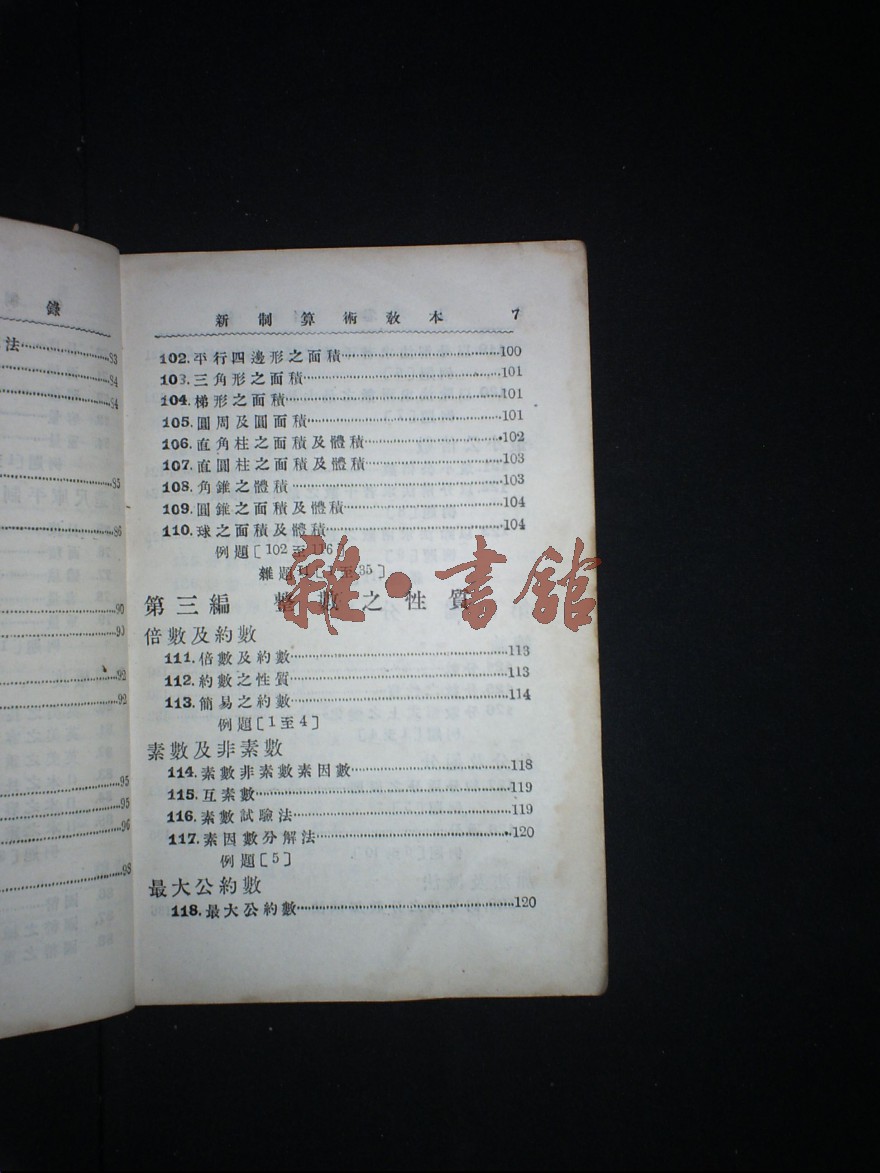 錄
法……83
……84
……84
……85
……86
……90
……92
……92
……95
……95
……96
……98
新制算術教本 7
102.平行四邊形之面積……100
103.三角形之面積……101
104.梯形之面積……101
105.圓周及圓面積……101
106.直角柱之面積及體積……102
107.直圓柱之面積及體積……103
108.角錐之體積……103
109.圓錐之面積及體積……104
110.球之面積及體積……104
例題[102至116]
雜題II[1至35]
雜·書館
第三編 整數之性質
倍數及約數
111.倍數及約數……113
112.約數之性質……113
113.簡易之約數……114
例題[1至4]
素數及非素數
114.素數非素數素因數……118
115.互素數……119
116.素數試驗法……119
117.素因數分解法……120
例題[5]
最大公約數
118.最大公約數……120